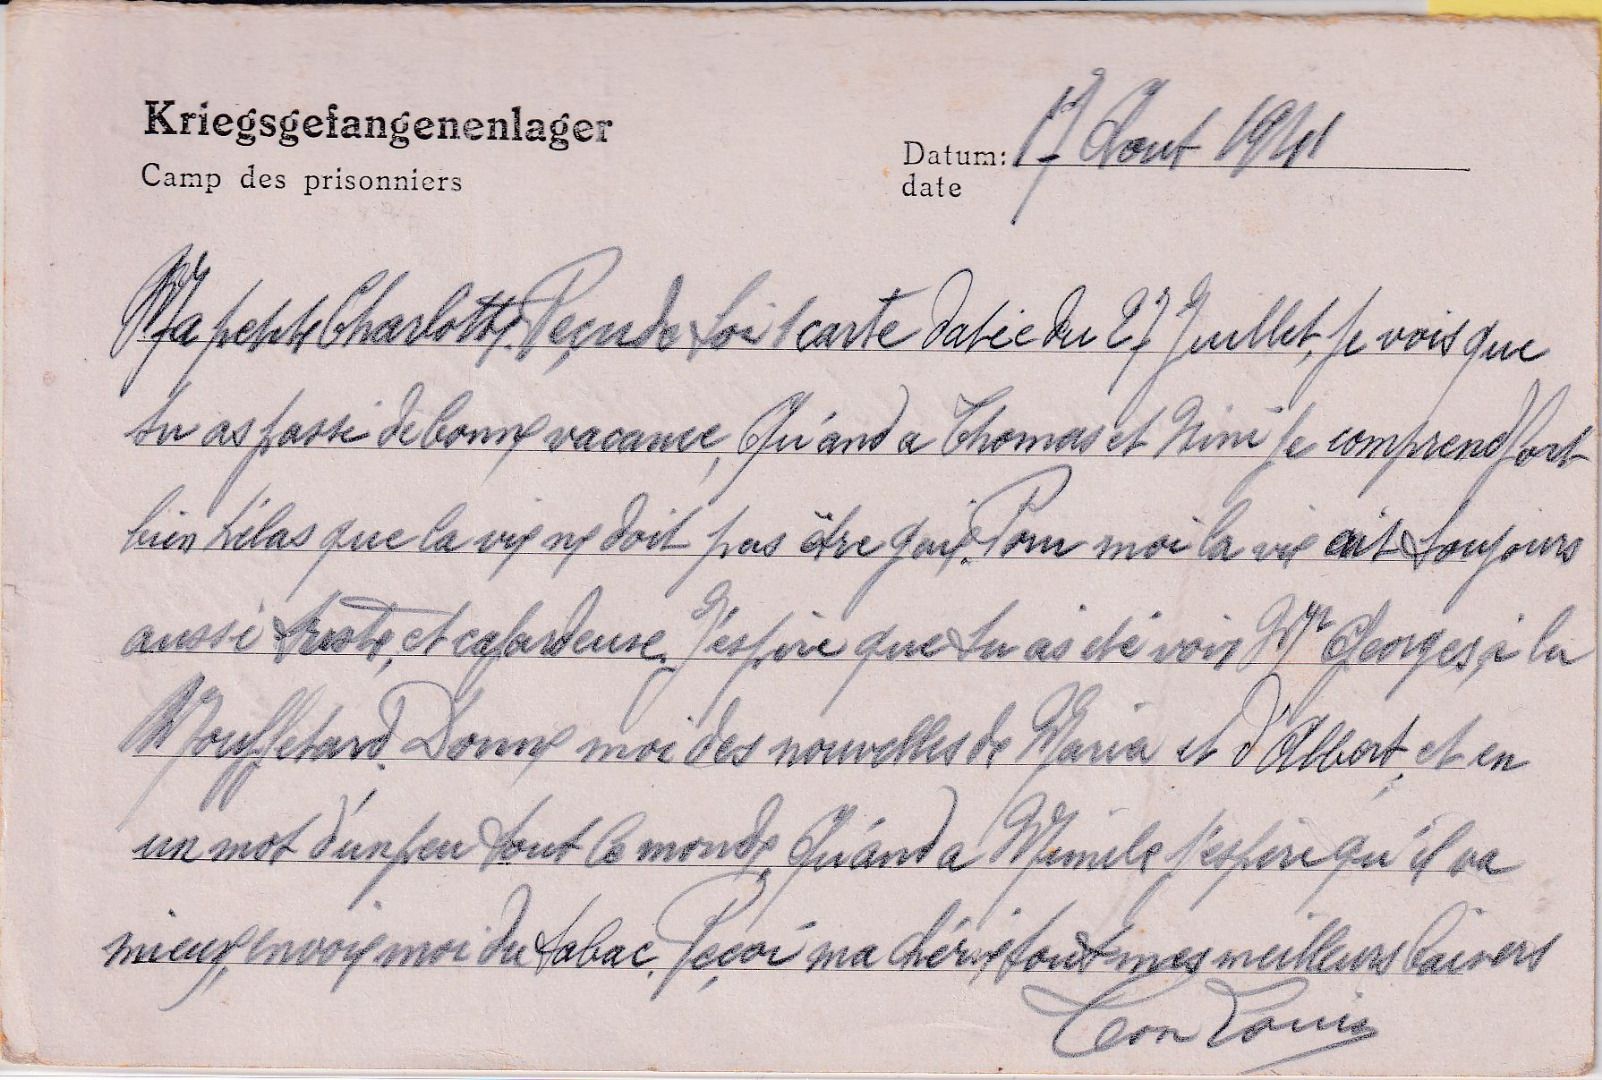 Kriegsgefangenenlager
Camp des prisonniers
Datum: 17 Aout 1941
date
Ma petite Charlotte. Reçu de toi 1 carte datée du 27 Juillet, je vois que
tu as passé de bonne vacance, Qu'and a Thomas et Nini je comprend fort
bien hélas que la vie ne doit pas être gaie. Pour moi la vie est toujours
aussi triste, et cafardeuse. J'espère que tu as été voir Mr Georges, à la
Mouffetard. Donne moi des nouvelles de Maria et d'Albert, et en
un mot d'un peu tout le monde, Qu'and a Mimile j'espère qu'il va
mieux, envoie moi du tabac. Reçoi ma chérie tout mes meilleurs baisers
Ton Louis